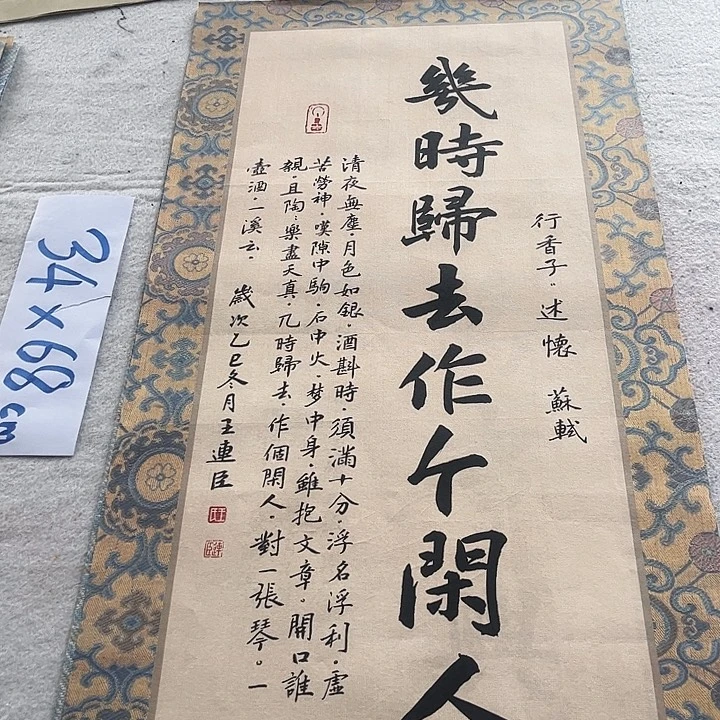 行香子：述懷 蘇軾
幾時歸去作个閑人
清夜無塵。月色如銀。酒斟時。須滿十分。浮名浮利。虛
苦勞神。嘆隙中駒。石中火。梦中身。雖抱文章。開口誰
親。且陶〻樂盡天真。几時歸去。作個閑人。對一張琴。一
壺酒。一溪云。 歲次乙巳冬月王連臣
34×68cm